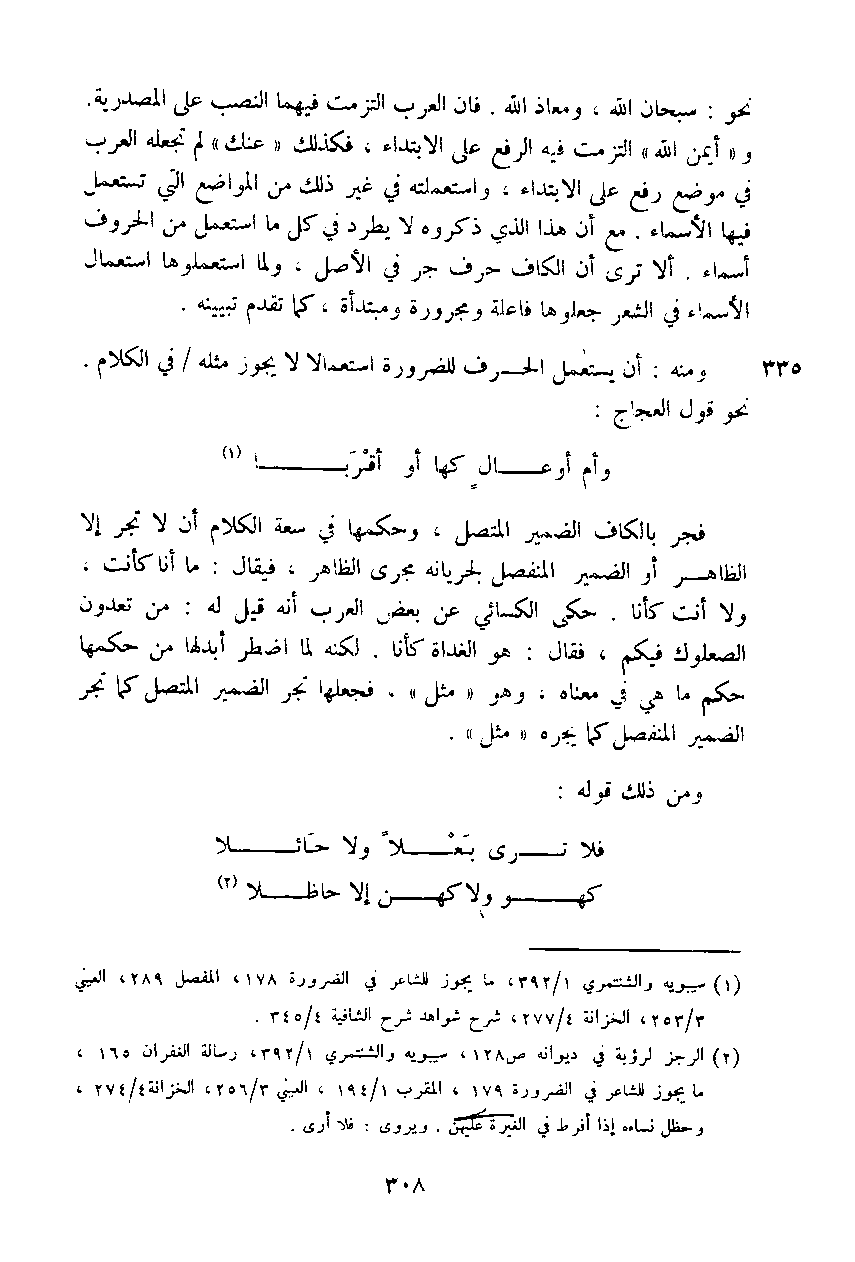 نحو : سبحان الله ، ومعاذ الله . فان العرب التزمت فيهما النصب على المصدرية.
و « أيمن الله » التزمت فيه الرفع على الابتداء ، فكذلك « عنك » لم تجعله العرب
في موضع رفع على الابتداء ، واستعملته في غير ذلك من المواضع التي تستعمل
فيها الأسماء . مع أن هذا الذي ذكروه لا يطرد في كل ما استعمل من الحروف
أسماء . ألا ترى أن الكاف حرف جر في الأصل ، ولما استعملوها استعمال
الأسماء في الشعر جعلوها فاعلة ومجرورة ومبتدأة ، كما تقدم تبيينه .
٣٣٥ ومنه : أن يستعمل الحرف للضرورة استعمالا لا يجوز مثله / في الكلام .
نحو قول العجاج :
وأم أوعـــالٍ كها أو أقْرَبَـــا (١)
فجر بالكاف الضمير المتصل ، وحكمها في سعة الكلام أن لا تجر إلا
الظاهـر أو الضمير المنفصل لجريانه مجرى الظاهر ، فيقال : ما أنا كأنت ،
ولا أنت كأنا . حكى الكسائي عن بعض العرب أنه قيل له : من تعدون
الصعلوك فيكم ، فقال : هو الغداة كأنا . لكنه لما اضطر أبدلها من حكمها
حكم ما هي في معناه ، وهو « مثل » ، فجعلها تجر الضمير المتصل كما تجر
الضمير المنفصل كما يجره « مثل » .
ومن ذلك قوله :
فلا تـــرى بَعْـــلاً ولا حَائـــلا
كهـــو ولا كهـــن إلا حاظـــلا (٢)
(١) سيبويه والشنتمري ٣٩٢/١، ما يجوز للشاعر في الضرورة ١٧٨، المفصل ٢٨٩، العيني
٢٥٣/٣، الخزانة ٢٧٧/٤، شرح شواهد شرح الشافية ٣٤٥/٤ .
(٢) الرجز لرؤبة في ديوانه ص١٢٨، سيبويه والشنتمري ٣٩٢/١، رسالة الغفران ١٦٥ ،
ما يجوز للشاعر في الضرورة ١٧٩ ، المقرب ١٩٤/١ ، العيني ٢٥٦/٣، الخزانة٢٧٤/٤ ،
وحظل نساءه إذا أفرط في الغيرة عليهن . ويروى : فلا أرى .
٣٠٨